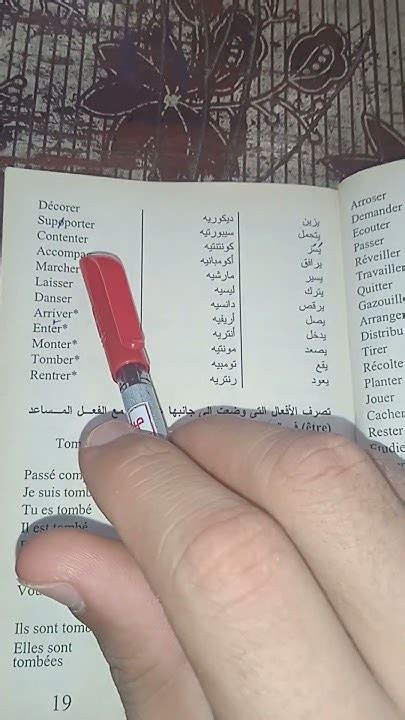 Décorer ديكوريه يزين
Supporter سيبورتيه يتحمل
Contenter كونتنتيه يسر
أكومبانيه يرافق
Marcher مارشيه يسير
Laisser ليسيه يترك
Danser دانسيه يرقص
Arriver* أريفيه يصل
Enter* أنتريه يدخل
Monter* مونتيه يصعد
Tomber* تومبيه يقع
Rentrer* رنتريه يعود
تصرف الأفعال التى وضعت الى جانبها مع الفعل المساعد
(être)
Passé
Je suis
Tu es tombé
Il est tombé
Ils sont
Elles sont
tombées
19
Arroser
Demander
Ecouter
Passer
Réveiller
Quitter
Tirer
Planter
Jouer
Cacher
Rester